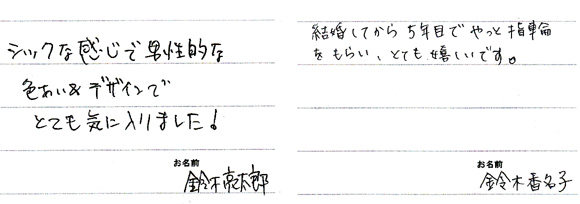 シックな感じで男性的な
色あい&デザインで
とても気に入りました!
お名前
鈴木京太郎
結婚してから5年目でやっと指輪
をもらい、とても嬉しいです。
お名前
鈴木香名子